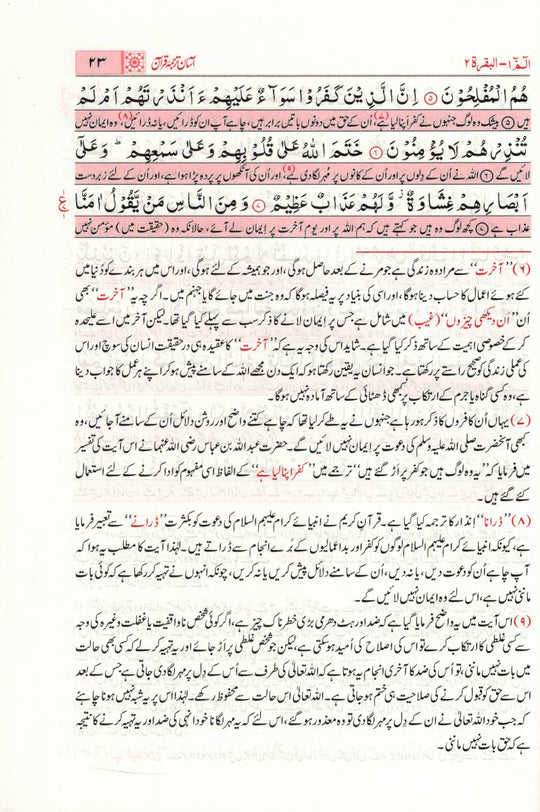 الٓمّٓ ۱ - البقرۃ ۲
آسان ترجمۂ قرآن
۲۳
هُمُ الْمُفْلِحُوْنَ ۝۵ اِنَّ الَّذِيْنَ كَفَرُوْا سَوَآءٌ عَلَيْهِمْ ءَاَنْذَرْتَهُمْ اَمْ لَمْ
ہیں ﴿۵﴾ بیشک وہ لوگ جنہوں نے کفر اپنا لیا ہے، (۷) اُن کے حق میں دونوں باتیں برابر ہیں، چاہے آپ ان کو ڈرائیں، یا نہ ڈرائیں، (۸) وہ ایمان نہیں
تُنْذِرْهُمْ لَا يُؤْمِنُوْنَ ۝۶ خَتَمَ اللّٰهُ عَلٰى قُلُوْبِهِمْ وَعَلٰى سَمْعِهِمْ ؕ وَعَلٰٓى
لائیں گے ﴿۶﴾ اللہ نے ان کے دِلوں پر اور اُن کے کانوں پر مُہر لگا دی ہے، (۹) اور اُن کی آنکھوں پر پردہ پڑا ہوا ہے، اور اُن کے لئے زبردست
اَبْصَارِهِمْ غِشَاوَةٌ ؗ وَّلَهُمْ عَذَابٌ عَظِيْمٌ ۝۷ وَمِنَ النَّاسِ مَنْ يَّقُوْلُ اٰمَنَّا
عذاب ہے ﴿۷﴾ کچھ لوگ وہ ہیں جو کہتے ہیں کہ ہم اللہ پر اور یوم آخرت پر ایمان لے آئے، حالانکہ وہ (حقیقت میں) مؤمن نہیں
(۶) ”آخرت“ سے مراد وہ زندگی ہے جو مرنے کے بعد حاصل ہوگی، اور جو ہمیشہ کے لئے ہوگی، اور اس میں ہر بندے کو دُنیا میں
کئے ہوئے اعمال کا حساب دینا ہوگا، اور اسی کی بنیاد پر یہ فیصلہ ہوگا کہ وہ جنت میں جائے گا یا جہنم میں۔ اگرچہ یہ ”آخرت“ بھی
اُن ”اَن دیکھی چیزوں“ (غیب) میں شامل ہے جس پر اِیمان لانے کا ذکر سب سے پہلے کیا گیا تھا۔ لیکن آخر میں اسے علیحدہ
کر کے خصوصی اہمیت کے ساتھ ذکر کیا گیا ہے۔ شاید اس کی وجہ یہ ہے کہ ”آخرت“ کا عقیدہ ہی در حقیقت انسان کی سوچ اور اس
کی عملی زندگی صحیح راستے پر رکھتا ہے۔ جو انسان یہ یقین رکھتا ہو کہ ایک دن مجھے اللہ کے سامنے پیش ہو کر اپنے ہر عمل کا جواب دینا
ہے، وہ کسی گناہ یا جرم کے ارتکاب پر کبھی ڈھٹائی کے ساتھ آمادہ نہیں ہوگا۔
(۷) یہاں اُن کافروں کا ذکر ہو رہا ہے جنہوں نے یہ طے کر لیا تھا کہ چاہے کتنے واضح اور روشن دلائل اُن کے سامنے آجائیں، وہ
کبھی آنحضرت صلی اللہ علیہ وسلم کی دعوت پر اِیمان نہیں لائیں گے۔ حضرت عبداللہ بن عباس رضی اللہ عنہما نے اس آیت کی تفسیر
میں فرمایا کہ ”یہ وہ لوگ ہیں جو کفر پر اَڑ گئے ہیں“ ترجمے میں ”کفر اپنا لیا ہے“ کے الفاظ اسی مفہوم کو ادا کرنے کے لئے استعمال
کئے گئے ہیں۔
(۸) ”ڈرانا“ اِنذار کا ترجمہ کیا گیا ہے۔ قرآن کریم نے انبیائے کرام علیہم السلام کی دعوت کو بکثرت ”ڈرانے“ سے تعبیر فرمایا
ہے، کیونکہ انبیائے کرام علیہم السلام لوگوں کو کفر اور بداعمالیوں کے بُرے انجام سے ڈراتے ہیں۔ لہٰذا آیت کا مطلب یہ ہوا کہ
آپ چاہے اُن کو دعوت دیں، یا نہ دیں، اُن کے سامنے دلائل پیش کریں یا نہ کریں، چونکہ انہوں نے تہیہ کر رکھا ہے کہ کوئی بات
ماننی نہیں ہے، اس لئے وہ ایمان نہیں لائیں گے۔
(۹) اس آیت میں یہ واضح فرمایا گیا ہے کہ ضد اور ہٹ دھرمی بڑی خطرناک چیز ہے، اگر کوئی شخص ناواقفیت یا غفلت وغیرہ کی وجہ
سے کسی غلطی کا ارتکاب کرے تو اس کی اصلاح کی اُمید ہو سکتی ہے، لیکن جو شخص غلطی پر اَڑ جائے اور یہ تہیہ کر لے کہ کسی بھی حالت
میں بات نہیں ماننی، تو اُس کی ضد کا آخری انجام یہ ہوتا ہے کہ اللہ تعالیٰ کی طرف سے اُس کے دِل پر مہر لگا دی جاتی ہے جس کے بعد
اس سے حق کو قبول کرنے کی صلاحیت ہی ختم ہو جاتی ہے۔ اللہ تعالیٰ اس حالت سے محفوظ رکھے۔ لہٰذا اس پر یہ شبہ نہیں ہونا چاہئے
کہ جب خود اللہ تعالیٰ نے ان کے دِل پر مہر لگا دی تو وہ معذور ہو گئے، اس لئے کہ یہ مہر لگانا خود انہی کی ضد اور یہ تہیہ کرنے کا نتیجہ
ہے کہ حق بات نہیں ماننی۔